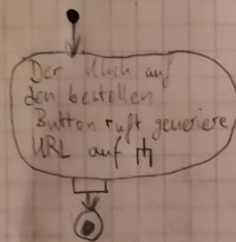 Der Klick auf
den bestellen
Button ruft generiere
URL auf